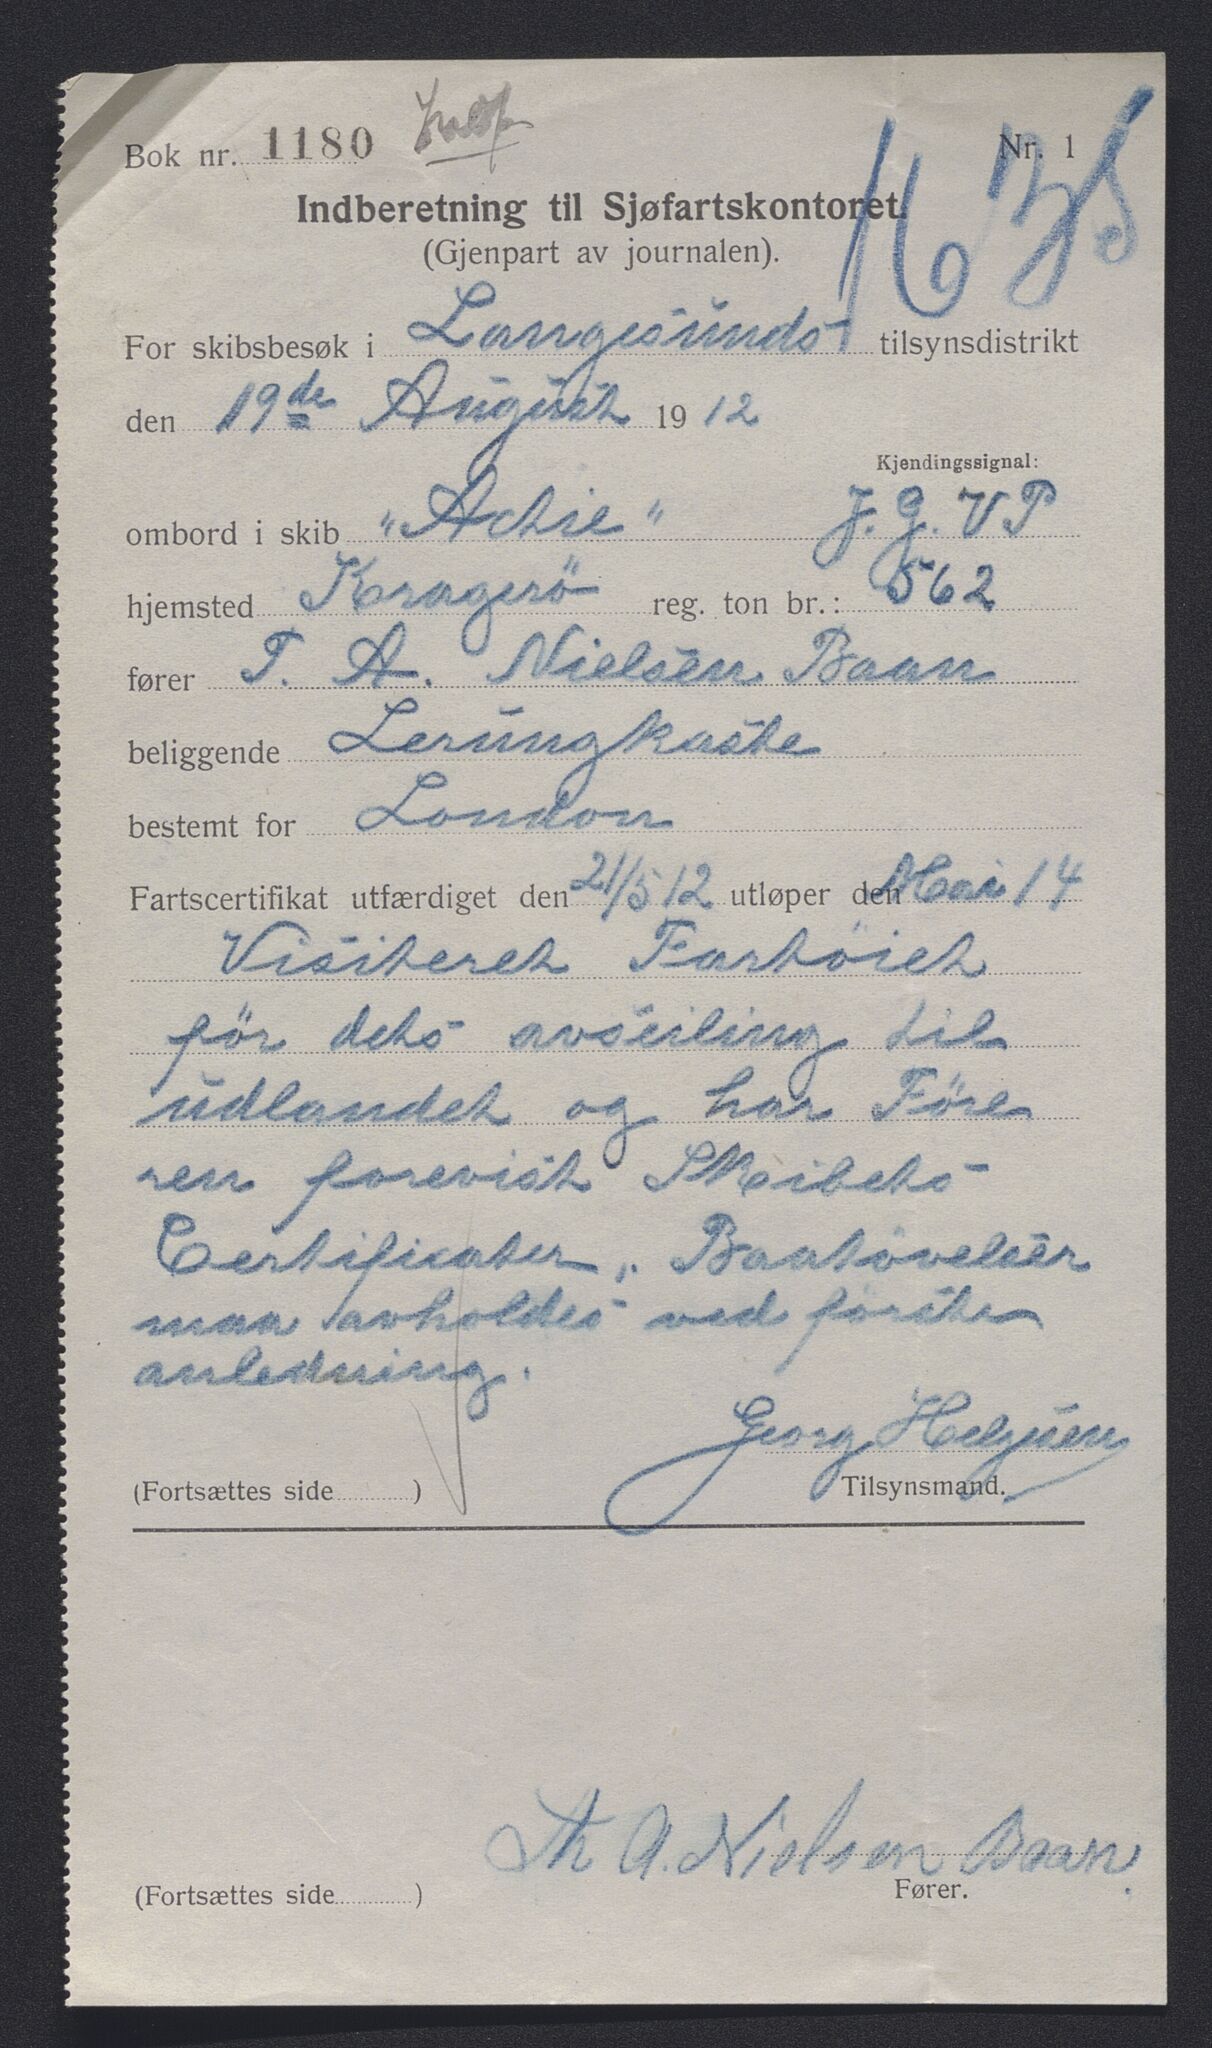 Bok nr. 1180
Nr. 1
Indberetning til Sjøfartskontoret.
(Gjenpart av journalen).
For skibsbesøk i Langesunds tilsynsdistrikt
den 19de August 1912
Kjendingssignal:
ombord i skib "Actie" J. G. V P
hjemsted Kragerö reg. ton br.: 562
fører T. A. Nielsen Baan
beliggende Lerungkaste
bestemt for London
Fartscertifikat utfærdiget den 21/5 12 utløper den Mai 14
Visiteret Fartöiet
för dets avseiling til
udlandet og har Före
ren forevist Skibets
Certifikater. Baatövelser
maa avholdes ved förste
anledning.
Georg Helgesen
(Fortsættes side ) Tilsynsmand.
Th A. Nielsen Baan.
(Fortsættes side ) Fører.